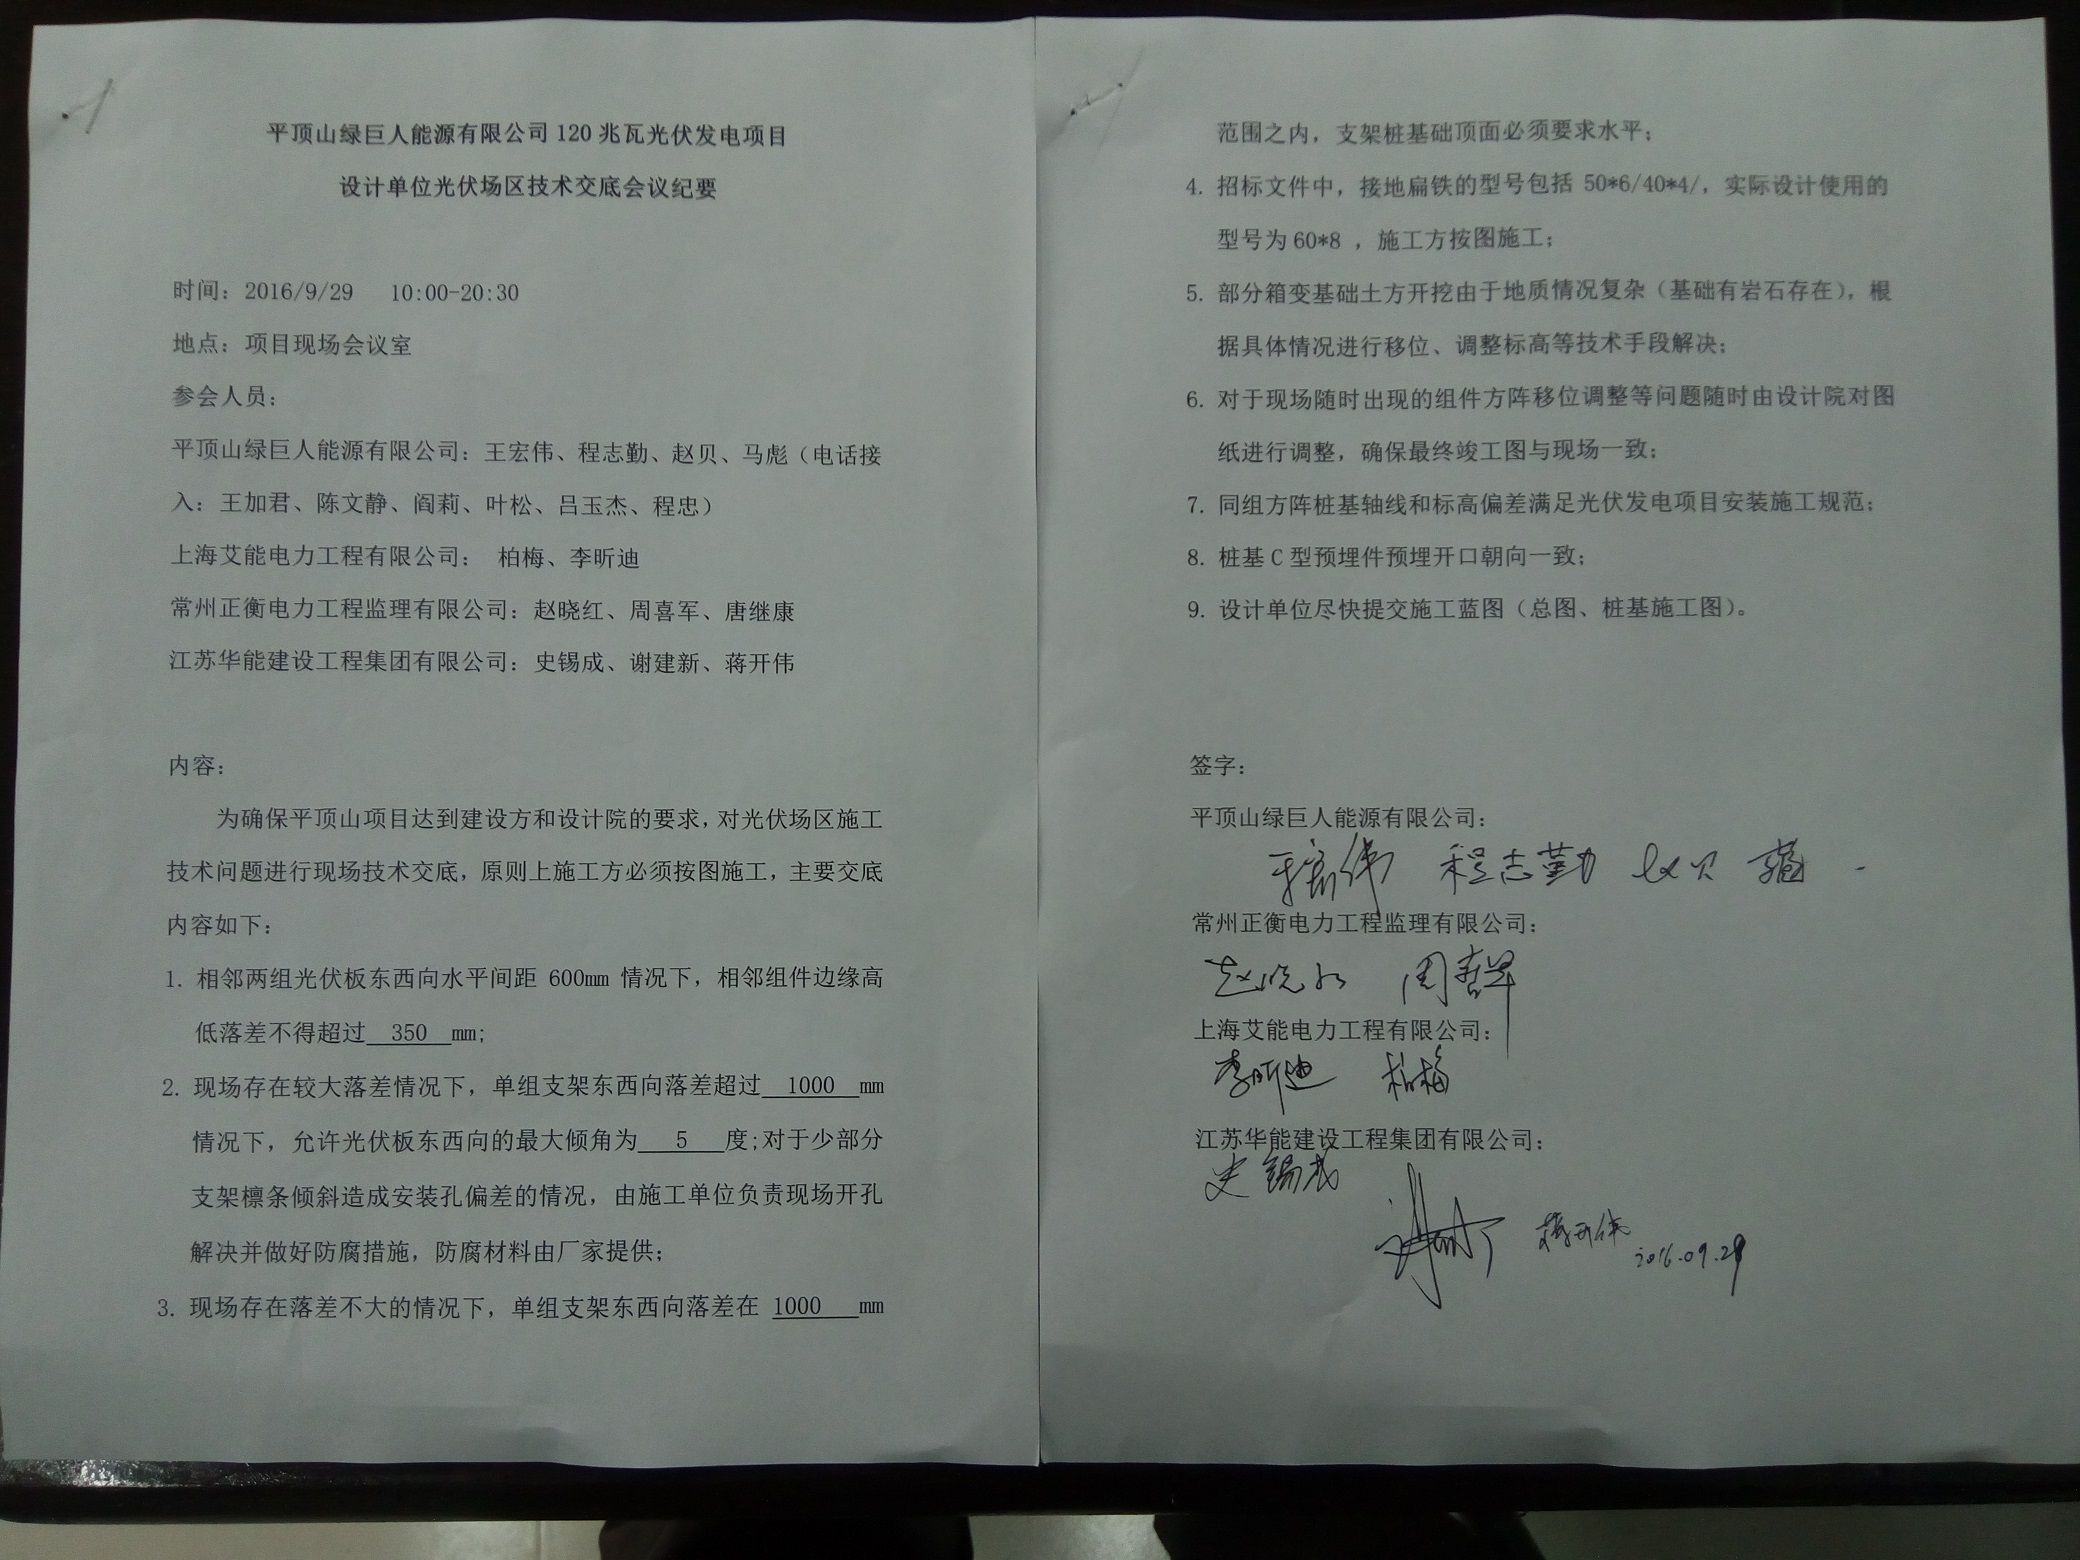 平顶山绿巨人能源有限公司120兆瓦光伏发电项目
设计单位光伏场区技术交底会议纪要
时间：2016/9/29 10:00-20:30
地点：项目现场会议室
参会人员：
平顶山绿巨人能源有限公司：王宏伟、程志勤、赵贝、马彪（电话接
入：王加君、陈文静、阎莉、叶松、吕玉杰、程忠）
上海艾能电力工程有限公司： 柏梅、李昕迪
常州正衡电力工程监理有限公司：赵晓红、周喜军、唐继康
江苏华能建设工程集团有限公司：史锡成、谢建新、蒋开伟
内容：
为确保平顶山项目达到建设方和设计院的要求，对光伏场区施工
技术问题进行现场技术交底，原则上施工方必须按图施工，主要交底
内容如下：
1. 相邻两组光伏板东西向水平间距 600mm 情况下，相邻组件边缘高
低落差不得超过 350 mm;
2. 现场存在较大落差情况下，单组支架东西向落差超过 1000 mm
情况下，允许光伏板东西向的最大倾角为 5 度;对于少部分
支架檩条倾斜造成安装孔偏差的情况，由施工单位负责现场开孔
解决并做好防腐措施，防腐材料由厂家提供；
3. 现场存在落差不大的情况下，单组支架东西向落差在 1000 mm
范围之内，支架桩基础顶面必须要求水平；
4. 招标文件中，接地扁铁的型号包括 50*6/40*4/，实际设计使用的
型号为60*8 ，施工方按图施工；
5. 部分箱变基础土方开挖由于地质情况复杂（基础有岩石存在），根
据具体情况进行移位、调整标高等技术手段解决；
6. 对于现场随时出现的组件方阵移位调整等问题随时由设计院对图
纸进行调整，确保最终竣工图与现场一致；
7. 同组方阵桩基轴线和标高偏差满足光伏发电项目安装施工规范；
8. 桩基C型预埋件预埋开口朝向一致；
9. 设计单位尽快提交施工蓝图（总图、桩基施工图）。
签字：
平顶山绿巨人能源有限公司：
王宏伟 程志勤 赵贝
常州正衡电力工程监理有限公司：
赵晓红 周喜军
上海艾能电力工程有限公司：
李昕迪 柏梅
江苏华能建设工程集团有限公司：
史锡成
蒋开伟 2016.09.29